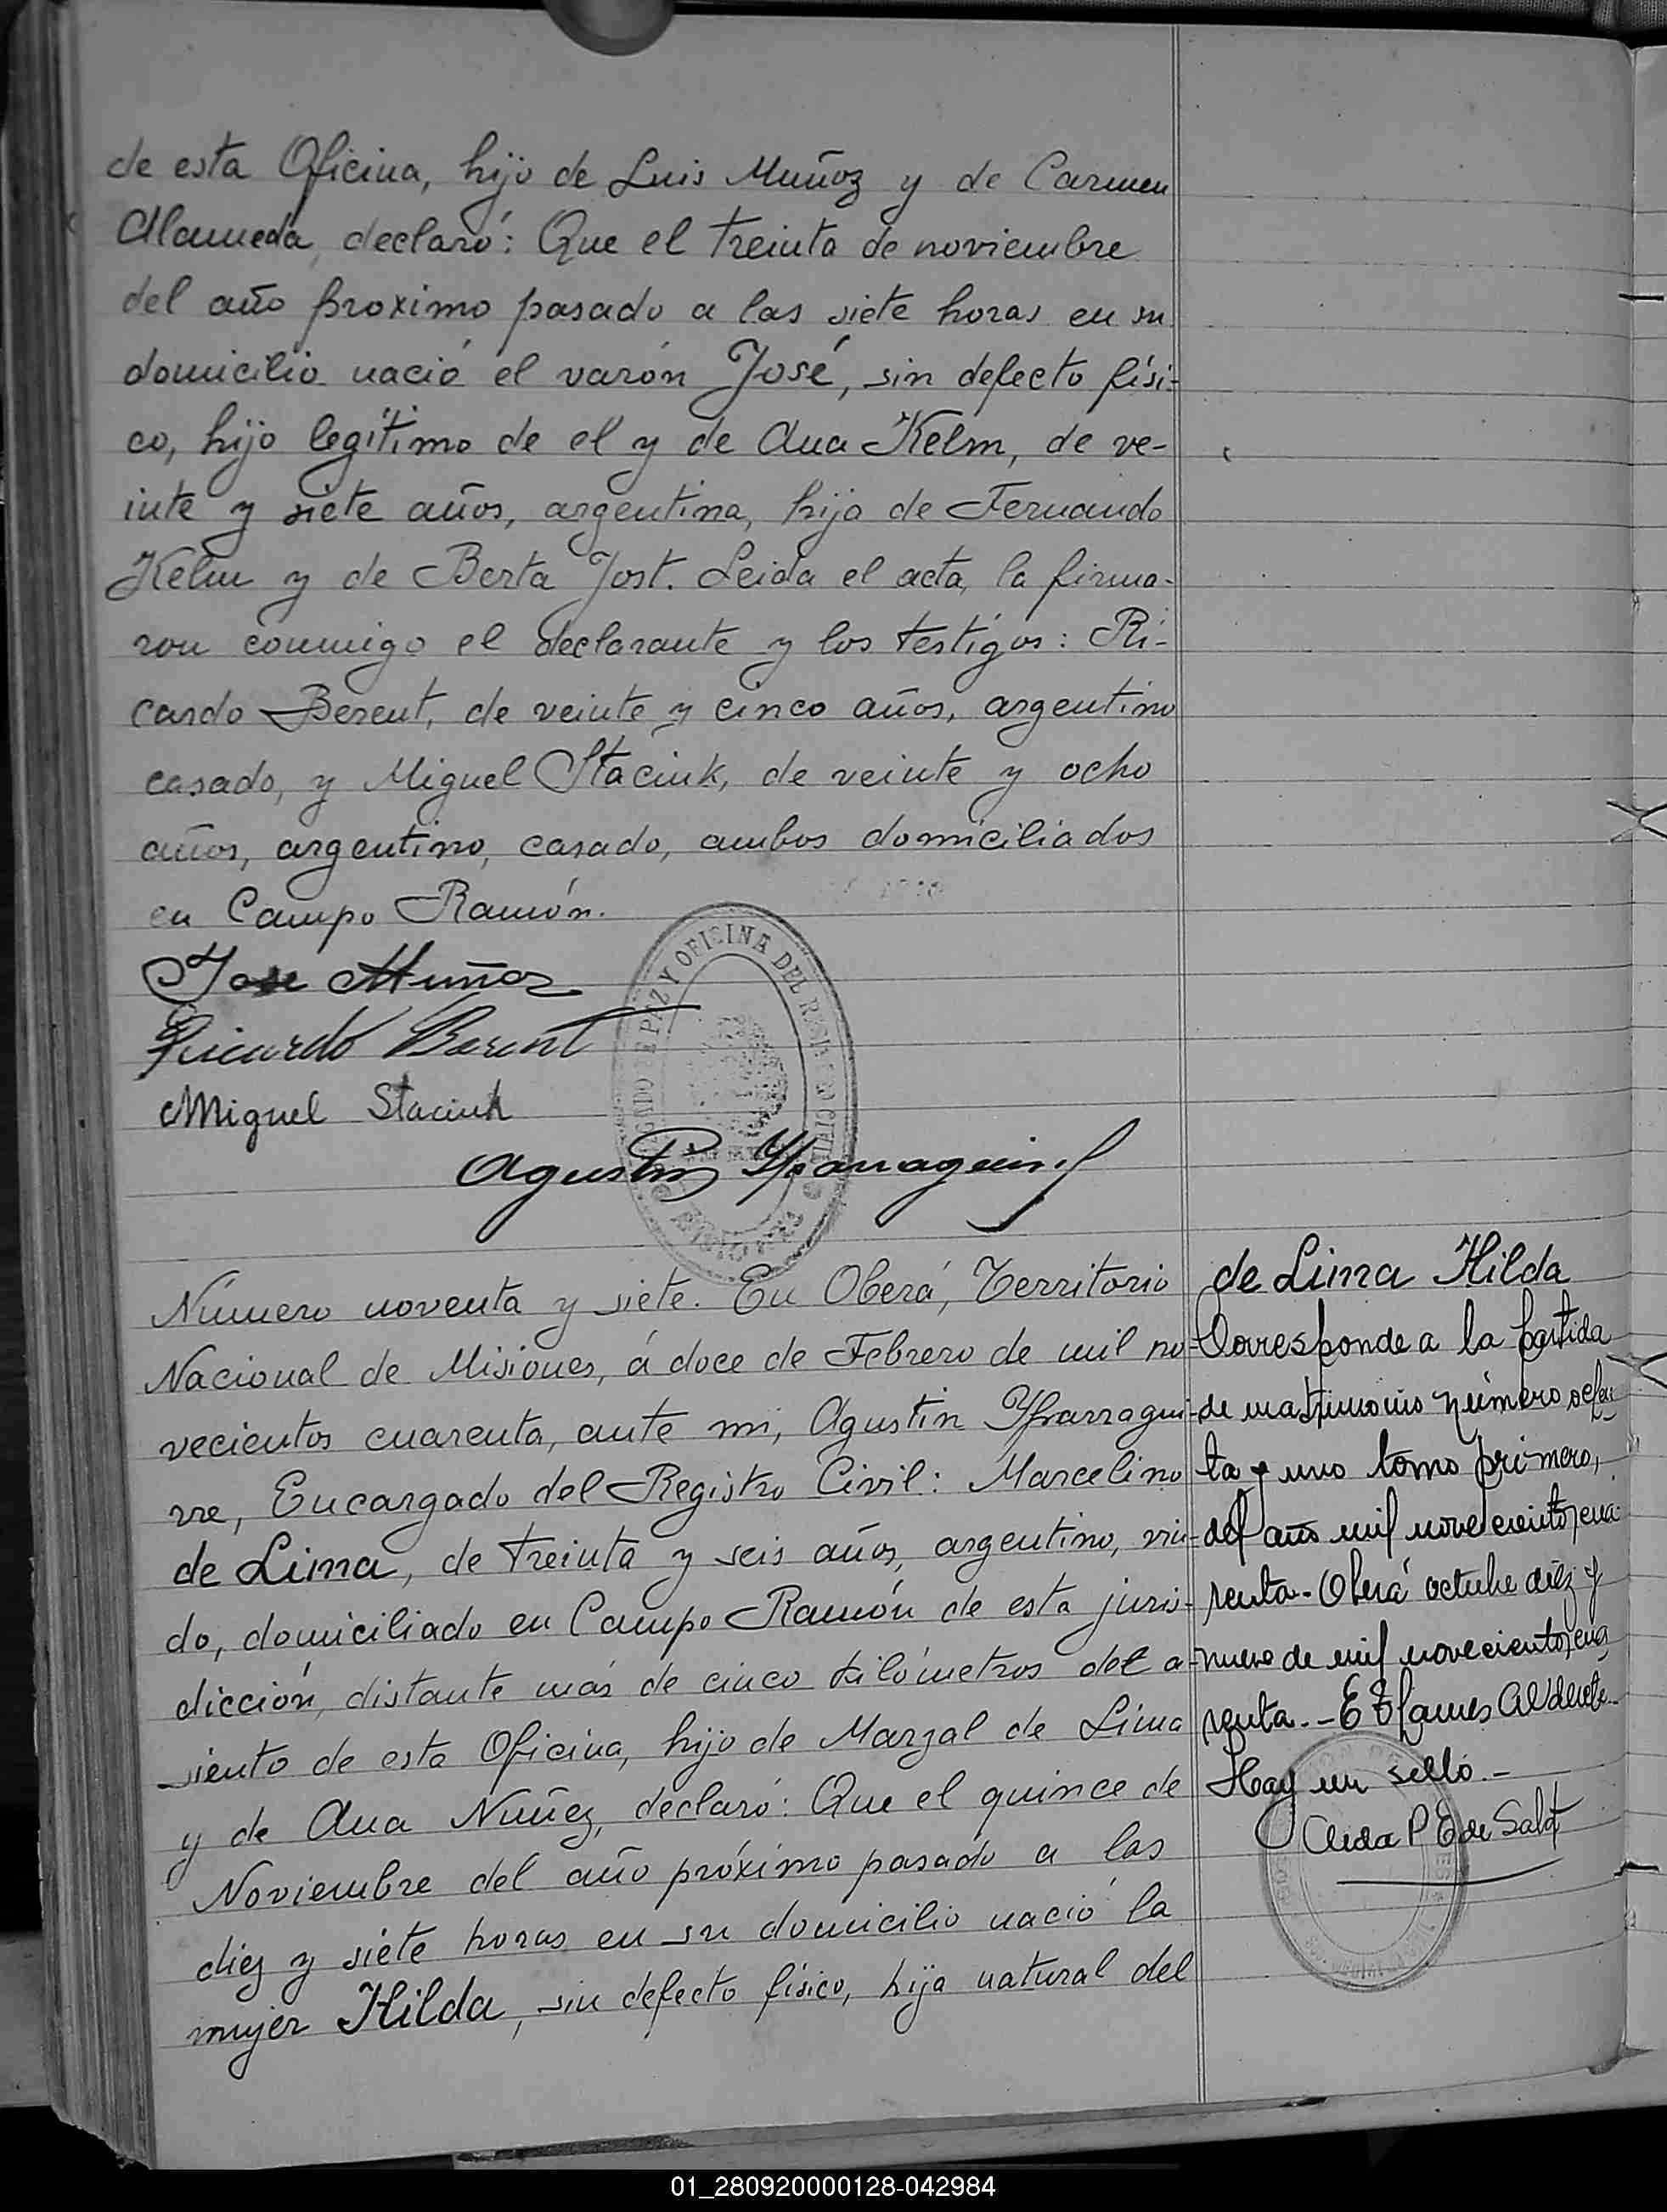 de esta Oficina, hijo de Luis Muñoz y de Carmen
Alameda, declaró: Que el treinta de noviembre
del año proximo pasado a las siete horas en su
domicilio nació el varón José, sin defecto físi-
co, hijo legítimo de el y de Ana Kelm, de ve-
inte y siete años, argentina, hija de Fernando
Kelm y de Berta Jost. Leida el acta, la firma-
ron conmigo el declarante y los testigos: Ri-
cardo Berent, de veinte y cinco años, argentino
casado, y Miguel Staciuk, de veinte y ocho
años, argentino, casado, ambos domiciliados
en Campo Ramón.
Jose Muñoz
Ricardo Berent
Miguel Staciuk
Agustin
JUZGADO DE PAZ Y OFICINA DEL REGISTRO CIVIL
MISIONES
Número noventa y siete. En Oberá, Territorio
Nacional de Misiones, á doce de Febrero de mil no-
vecientos cuarenta, ante mi, Agustin Yparragui-
rre, Encargado del Registro Civil: Marcelino
de Lima, de treinta y seis años, argentino, viu-
do, domiciliado en Campo Ramón de esta juris-
dicción, distante más de cinco kilómetros del a-
siento de esta Oficina, hijo de Marzal de Lima
y de Ana Nuñez, declaró: Que el quince de
Noviembre del año próximo pasado a las
diez y siete horas en su domicilio nació la
mujer Hilda, sin defecto físico, hija natural del
de Lima Hilda
Corresponde a la partida
de matrimonio número ochen
ta y uno tomo primero,
del año mil novecientos cua
renta - Oberá octubre diez y
nueve de mil novecientos cua
renta. -
Hay un sello. -
01_280920000128-042984